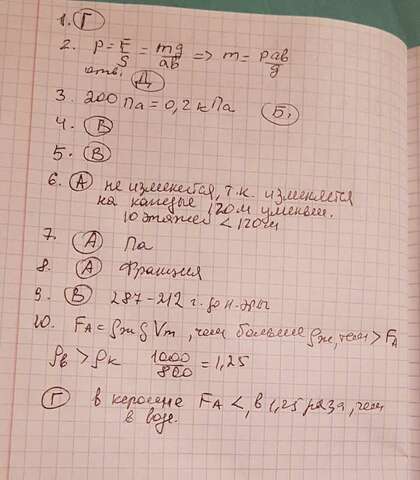 1. Г
2. P = F/S = mg/ab => m = pab/g
отв. Д
3. 200 Па = 0,2 кПа Б.
4. В
5. В
6. А не изменится, т.к. изменяется
на каждые 120м уменьш.
10 этажей < 120м
7. А Па
8. А Франция
9. В 287-212 г. до н. эры
10. FA = ρж g Vт, чем больше ρж, тем > FA
ρв > ρк 1000/800 = 1,25
Г в керосине FA <, в 1,25 раза, чем
в воде.